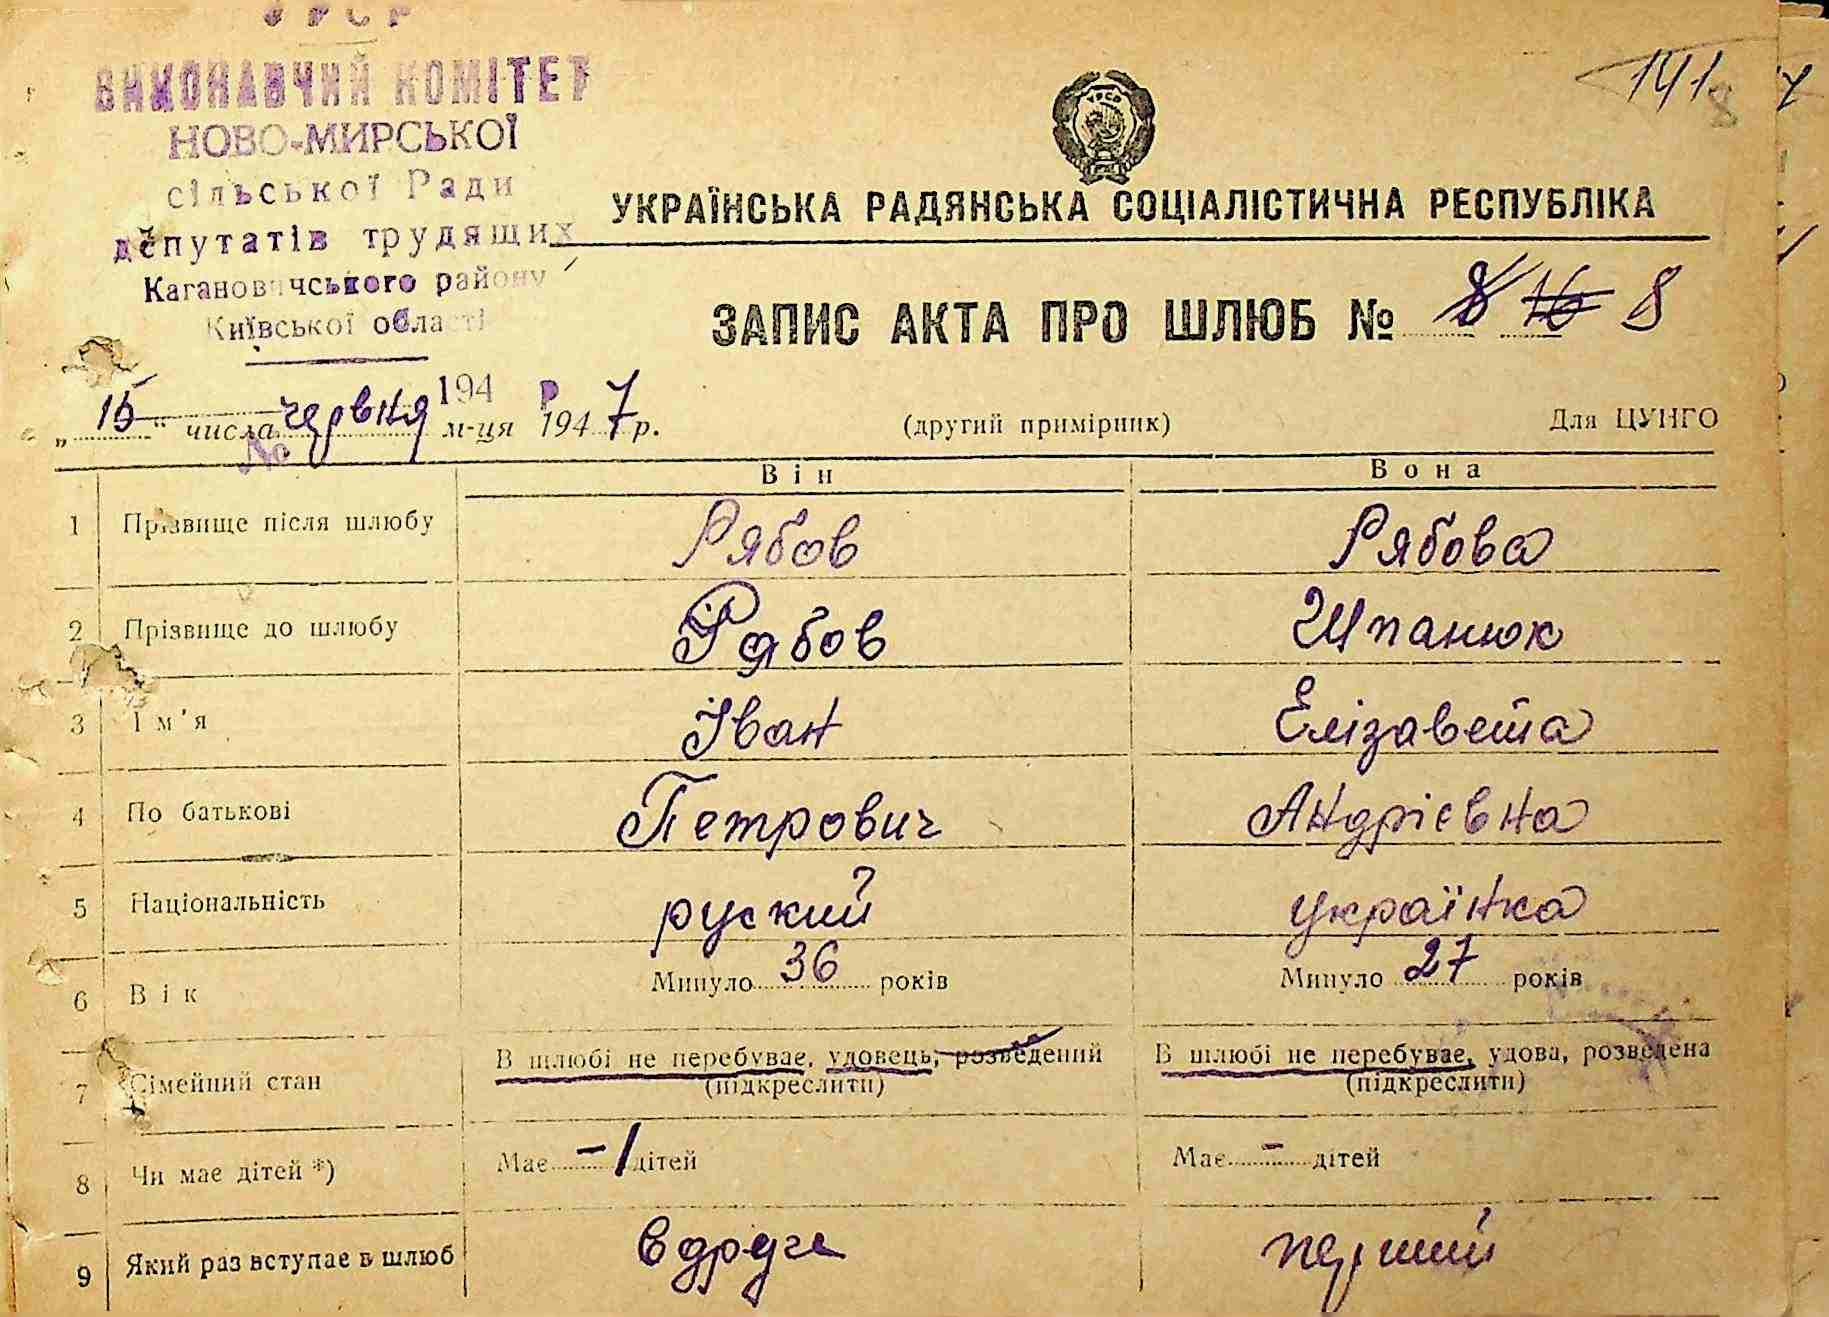 УРСР
ВИКОНАВЧИЙ КОМІТЕТ
НОВО-МИРСЬКОЇ
сільської Ради
депутатів трудящих
Кагановичського району
Київської області
141 8
УРСР
УКРАЇНСЬКА РАДЯНСЬКА СОЦІАЛІСТИЧНА РЕСПУБЛІКА
ЗАПИС АКТА ПРО ШЛЮБ № 8 16 8
194 р
№
„ 15 “ числа червня м-ця 1947 р.
(другий примірник)
Для ЦУНГО
Він Вона
1 Прізвище після шлюбу Рябов Рябова
2 Прізвище до шлюбу Рябов Шпанюк
3 Ім'я Іван Елізавета
4 По батькові Петрович Андрієвна
5 Національність руский українка
6 Вік Минуло 36 років Минуло 27 років
7 Сімейний стан В шлюбі не перебуває, удовець, розведений (підкреслити) В шлюбі не перебуває, удова, розведена (підкреслити)
8 Чи має дітей *) Має - 1 дітей Має - дітей
9 Який раз вступає в шлюб вдруге перший